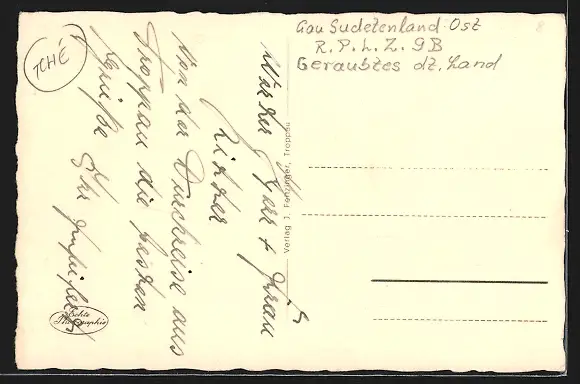 TCHÉ
Gau Sudetenland-Ost
R.P.L.Z. 9B
Geraubtes dt. Land
Werter Herr + Frau
Richter
Von der Durchreise aus
Troppau die besten
Grüße Ihr
Verlag J. Fenzinger, Troppau
Echte
Photographie
8